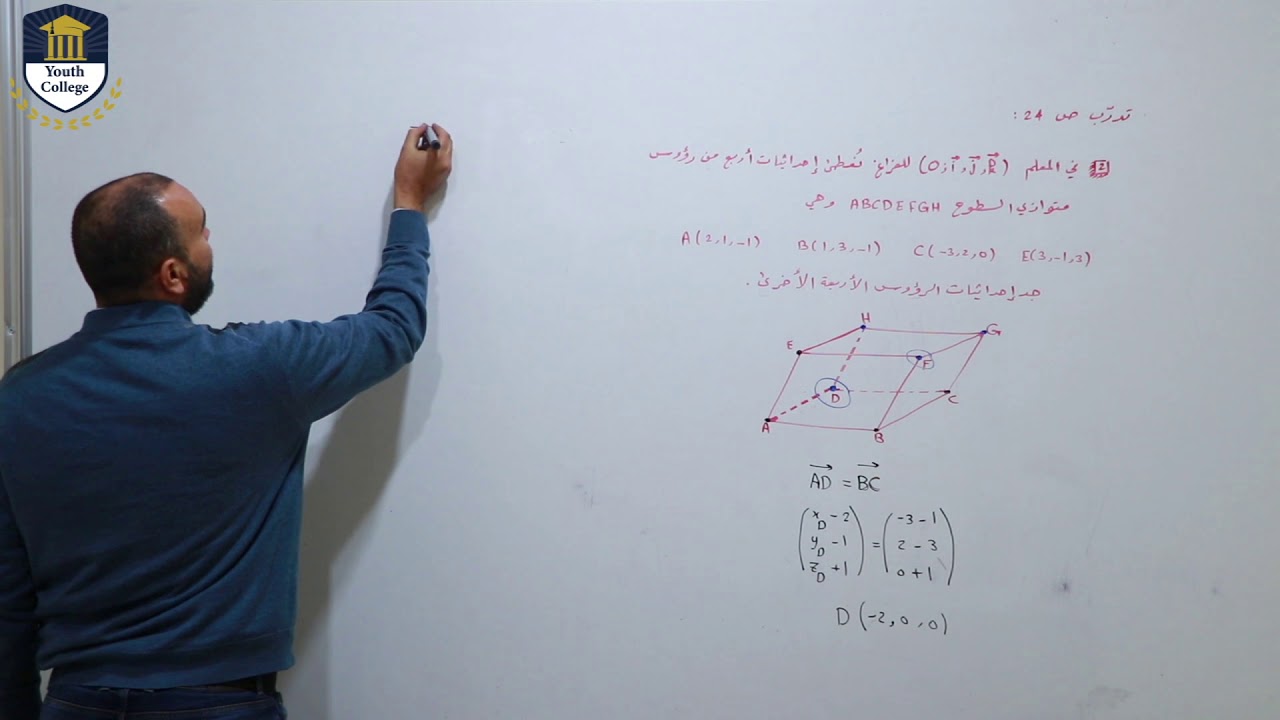 Youth
College
تدرّب ص 24 :
2 في المعلم (O, i, j, k) للفراغ نُعطى إحداثيات أربع من رؤوس
متوازي السطوح ABCDEFGH وهي
A(2,1,-1) B(1,3,-1) C(-3,2,0) E(3,-1,3)
جد إحداثيات الرؤوس الأربعة الأخرى .
H
G
E
F
D
C
A
B
AD = BC
x_D - 2 -3 - 1
y_D - 1 = 2 - 3
z_D + 1 0 + 1
D (-2, 0, 0)